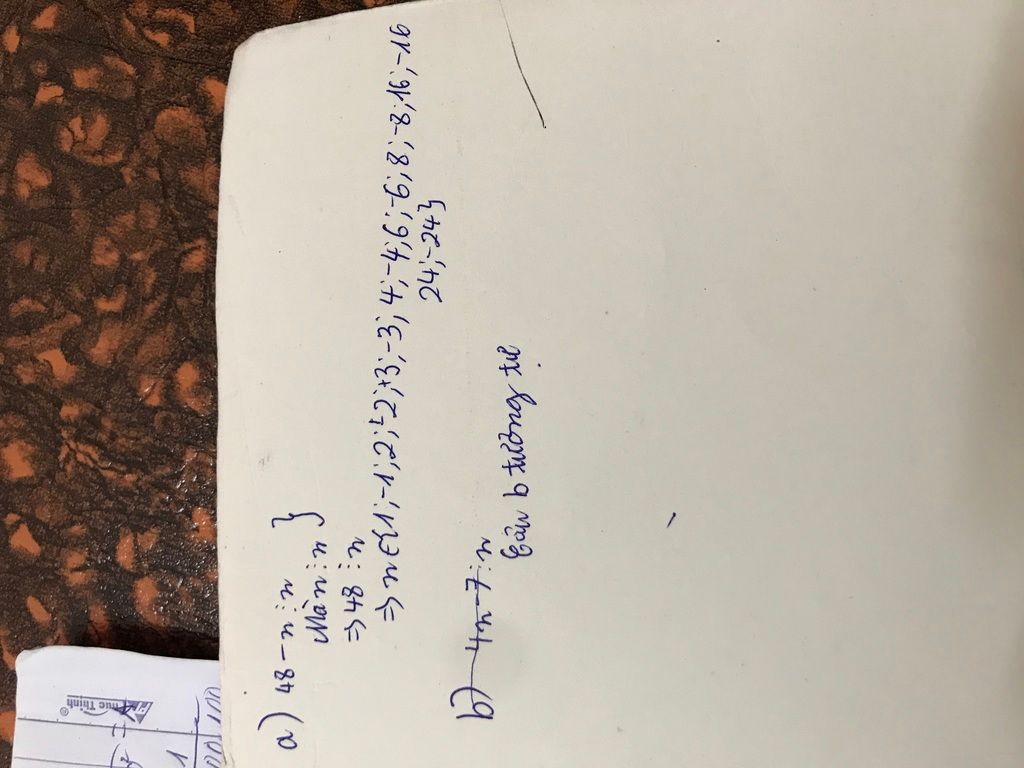 a) 48 - n ⋮ n
Mà n ⋮ n }
=> 48 ⋮ n
=> n ∈ {1; -1; 2; -2; +3; -3; 4; -4; 6; -6; 8; -8; 16; -16
24; -24}
b) 4n - 7 ⋮ n
Câu b tương tự
Phúc Thịnh®